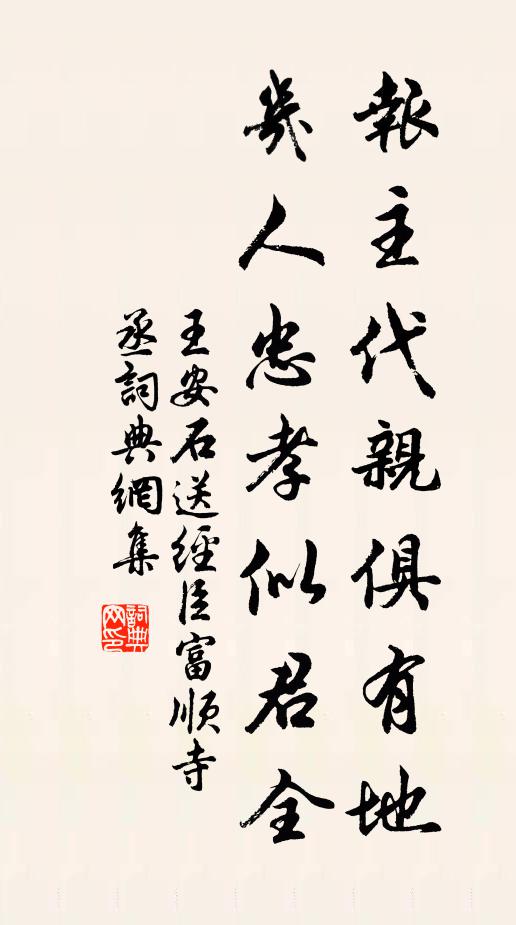 報主代親俱有地
幾人忠孝似君全
王安石送經臣富順寺
丞詞典網集
詞典
网印